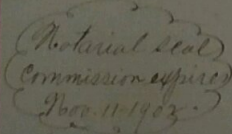 Notarial seal
Commission expires
Nov. 11-1902.